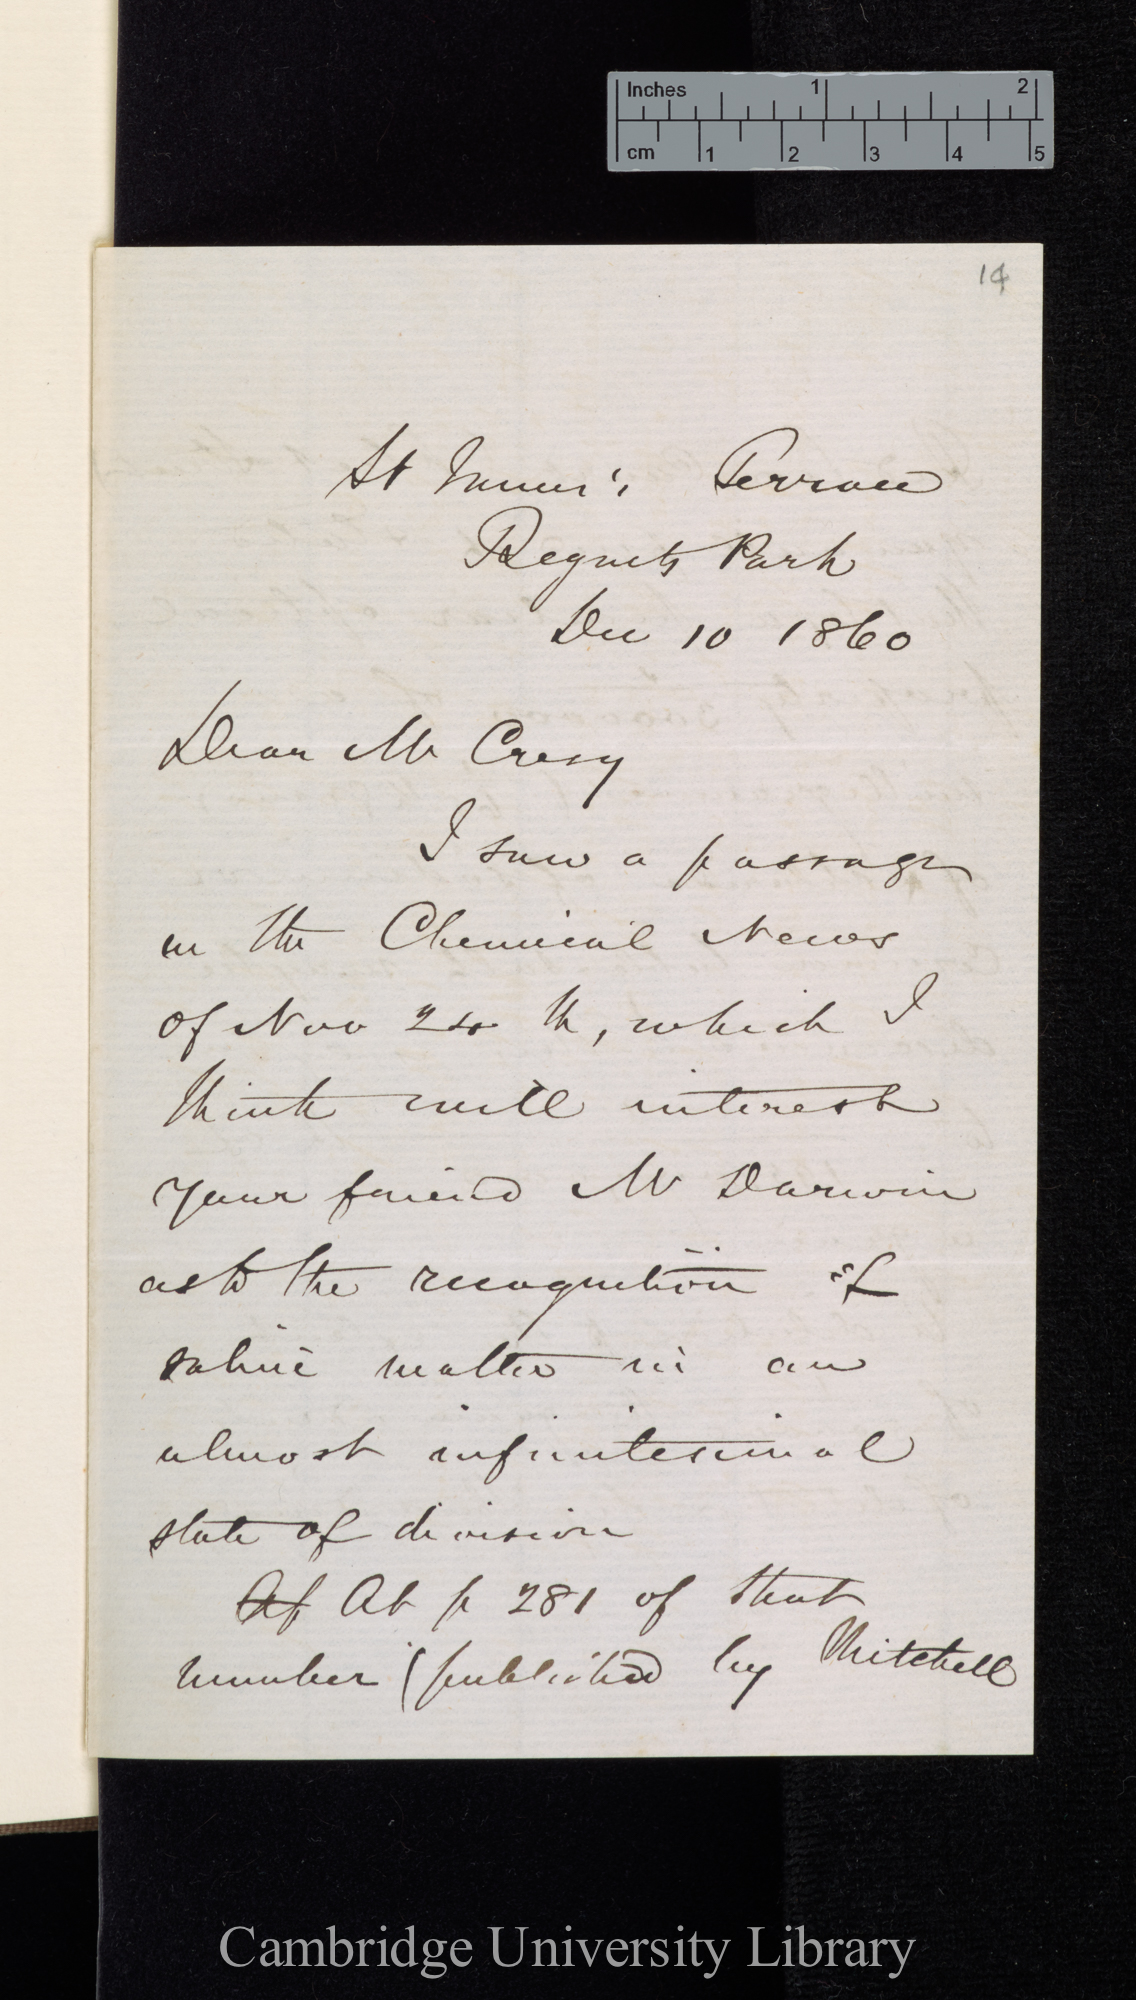 Inches 1 2
cm 1 2 3 4 5
14
St James's Terrace
Regents Park
Dec 10 1860
Dear Mr Cresy
I saw a passage
in the Chemical News
of Nov 24th, which I
think will interest
your friend Mr Darwin
as to the recognition of
saline matter in an
almost infinitesimal
state of division
Af At p 281 of that
number (published by Mitchell
Cambridge University Library